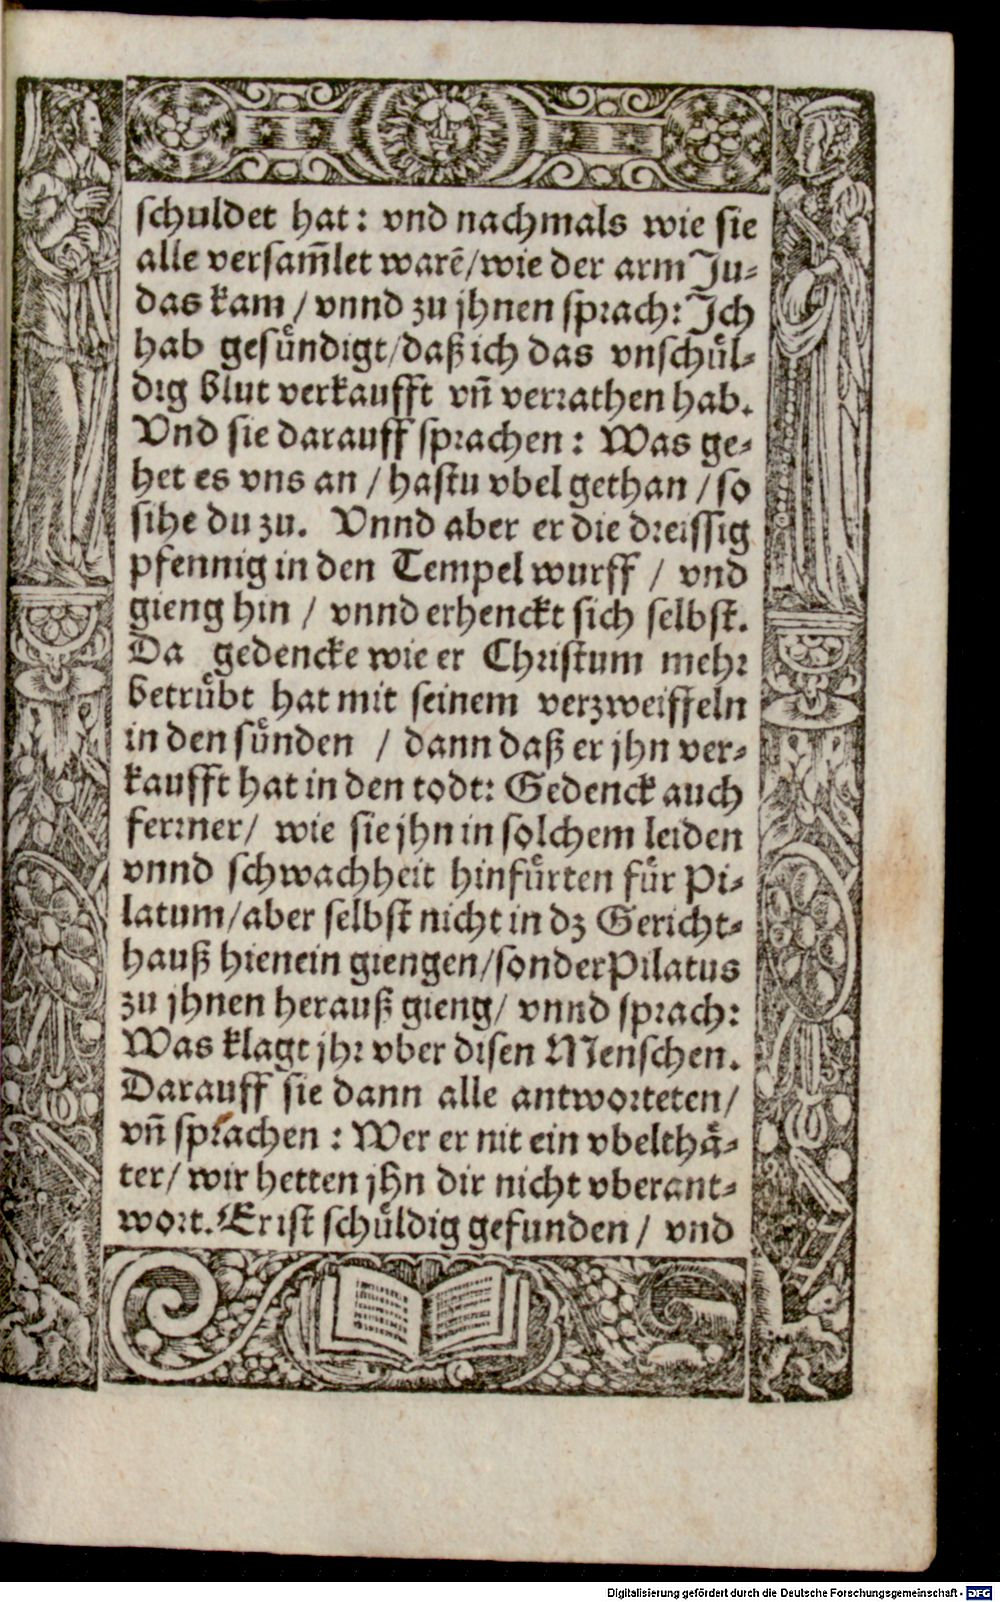 schuldet hat: vnd nachmals wie sie
alle versam̃let warẽ/wie der arm Ju-
das kam / vnnd zu jhnen sprach: Jch
hab gesuͤndigt/daß ich das vnschuͤl-
dig blut verkaufft vñ verrathen hab.
Vnd sie darauff sprachen: Was ge-
het es vns an / hastu vbel gethan / so
sihe du zu. Vnnd aber er die dreissig
pfennig in den Tempel wurff / vnd
gieng hin / vnnd erhenckt sich selbst.
Da gedencke wie er Christum mehr
betruͤbt hat mit seinem verzweiffeln
in den suͤnden / dann daß er jhn ver-
kaufft hat in den todt: Gedenck auch
ferrner/ wie sie jhn in solchem leiden
vnnd schwachheit hinfuͤrten fuͤr Pi-
latum/aber selbst nicht in dz Gericht-
hauß hienein giengen/sonder Pilatus
zu jhnen herauß gieng/ vnnd sprach:
Was klagt jhr vber disen Menschen.
Darauff sie dann alle antworteten/
vñ sprachen : Wer er nit ein vbelthaͤ-
ter/ wir hetten jhn dir nicht vberant-
wort. Er ist schuͤldig gefunden / vnd
Digitalisierung gefördert durch die Deutsche Forschungsgemeinschaft - DFG